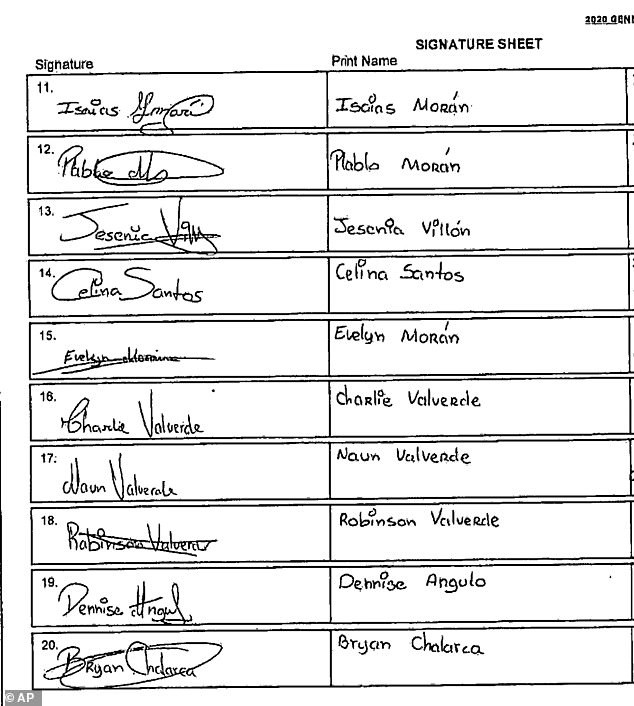 2020 GENE
SIGNATURE SHEET
Signature Print Name
11. Isaias Isaias Morán
12. Pablo Pablo Morán
13. Jesenia Jesenia Villón
14. Celina Santos Celina Santos
15. Evelyn Evelyn Morán
16. Charlie Valverde Charlie Valverde
17. Naun Valverde Naun Valverde
18. Robinson Valverde Robinson Valverde
19. Dennise Angulo Dennise Angulo
20. Bryan Chalarca Bryan Chalarca
© AP